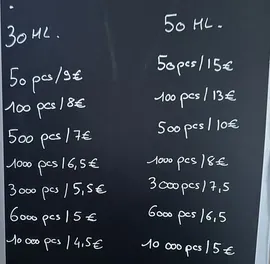 30 ML.
50 pcs/9€
100 pcs/8€
500 pcs/7€
1000 pcs/6,5€
3000 pcs/5,5€
6000 pcs/5€
10 000 pcs/4,5€
50 ML.
50 pcs/15€
100 pcs/13€
500 pcs/10€
1000 pcs/8€
3000 pcs/7,5
6000 pcs/6,5
10 000 pcs/5€